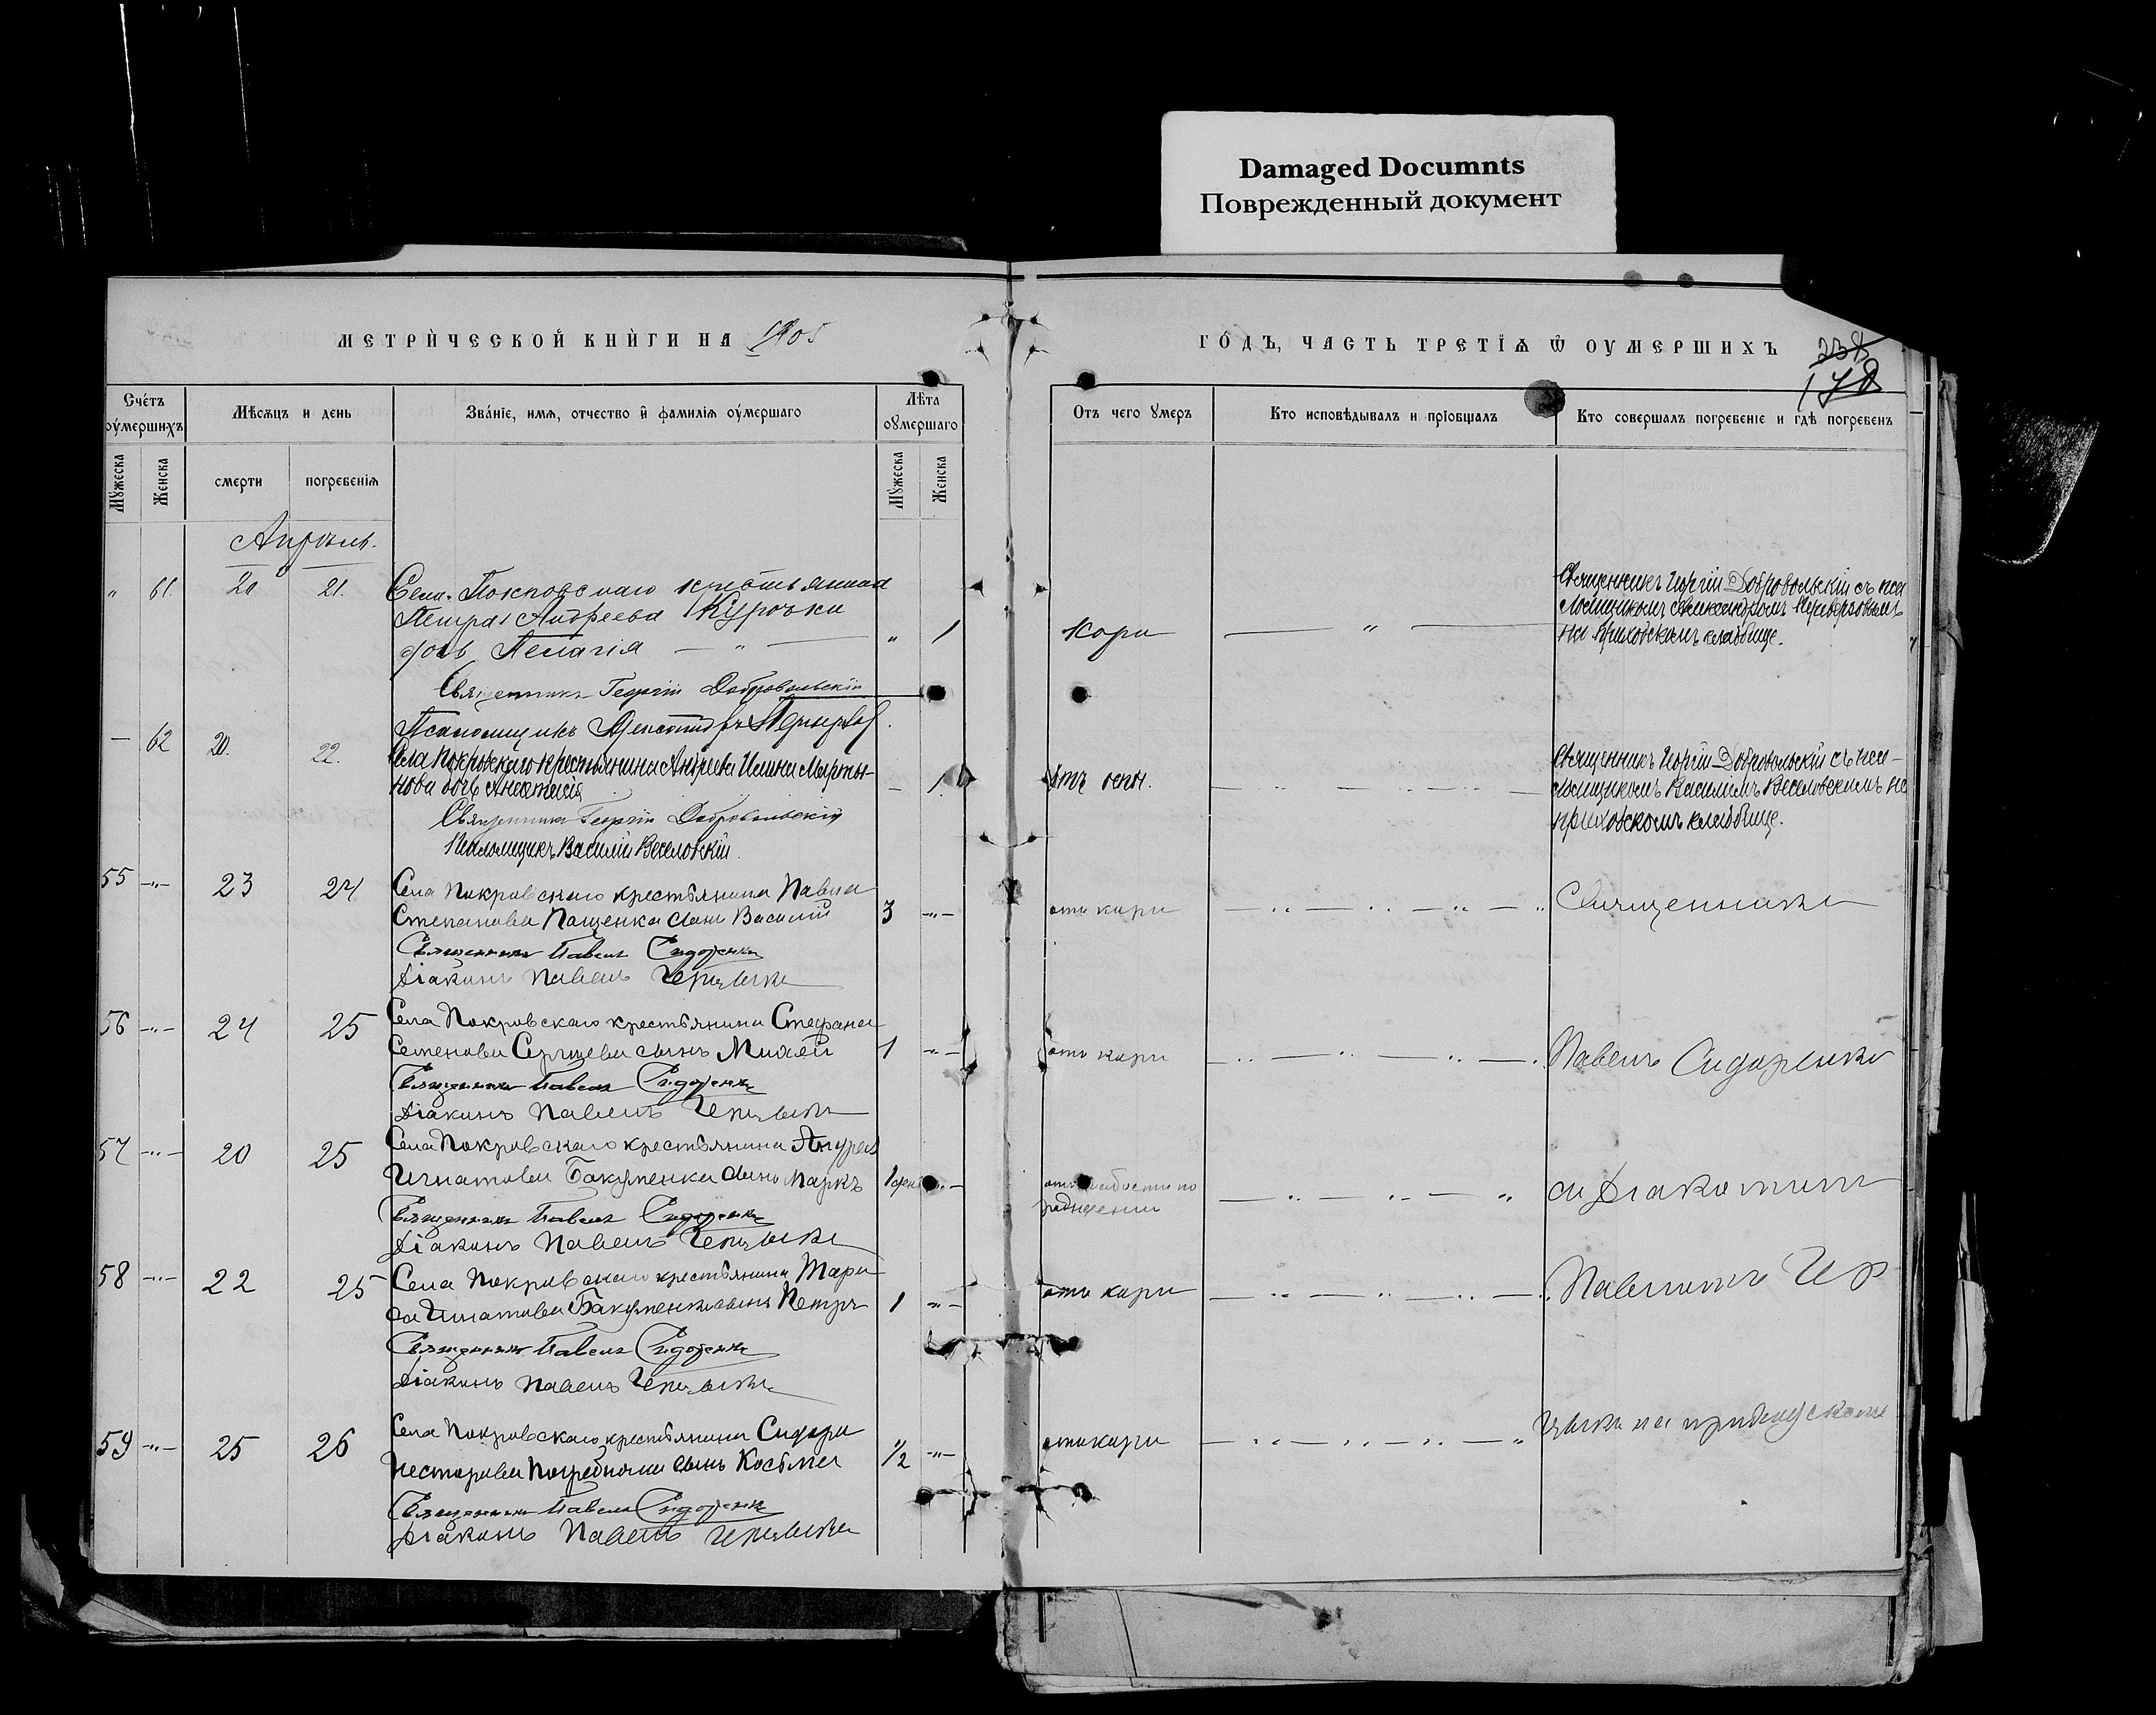 Damaged Documnts
Поврежденный документ
МЕТРИЧЕСКОЙ КНИГИ НА 1905
ГОДЪ, ЧАСТЬ ТРЕТІѦ Ѿ ОУМЕРШИХЪ
238
178
Счетъ оумершихъ
Мѣсѧцъ и день
Званіе, имѧ, отчество и фамиліѧ оумершаго
Лѣта оумершаго
Отъ чего умеръ
Кто исповѣдывалъ и пріобщалъ
Кто совершалъ погребеніе и гдѣ погребенъ
Мужеска
Женска
смерти
погребеніѧ
Мужеска
Женска
Апрѣль.
" 61. 20 21. Села Покровскаго крестьянина
Петра Андреева Курочки
дочь Пелагія — " — " 1 Кори — " —
Священникъ Георгій Добровольскій съ псаломщикомъ Александромъ на приходскомъ кладбище.
Священникъ Георгій Добровольскій
Псаломщикъ Александръ
— 62 20. 22. Села Покровскаго крестьянина Андреева Мартынова дочь Анастасія — 1 Отъ оспы.
Священникъ Георгій Добровольскій съ псаломщикомъ Василіемъ Веселовскимъ на приходскомъ кладбище.
Священникъ Георгій Добровольскій
Псаломщикъ Василій Веселовскій.
55 —"— 23 24 Села Покровскаго крестьянина Павла
Степанова Пащенка сынъ Василій 3 —"— отъ кори
Священникъ Павелъ Сидоренко
Діаконъ Павелъ
56 —"— 24 25 Села Покровскаго крестьянина Стефана
Семенова сынъ Михей 1 —"— отъ кори
Священникъ Павелъ Сидоренко
Діаконъ Павелъ
57 —"— 20 25 Села Покровскаго крестьянина Андрея
Игнатова Бакуменка сынъ Маркъ отъ слабости по рожденіи
Священникъ Павелъ Сидоренко
Діаконъ Павелъ
58 —"— 22 25 Села Покровскаго крестьянина
Игнатова Бакуменка сынъ Петръ 1 —"— отъ кори
Священникъ Павелъ Сидоренко
Діаконъ Павелъ
59 —"— 25 26 Села Покровскаго крестьянина Сидора
Несторова сынъ Косьма 1/2 —"— отъ кори
Священникъ Павелъ Сидоренко
Діаконъ Павелъ
Священникъ
Павелъ Сидоренко
съ діакономъ
Павломъ
на приходскомъ